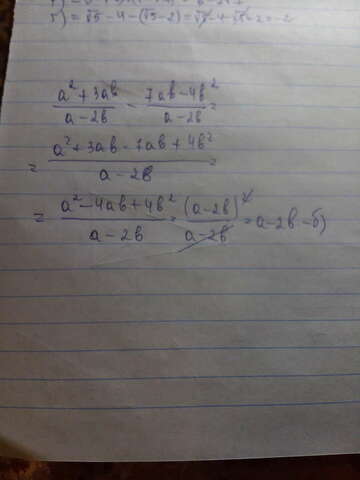 5) = √5 - 4 - (√5 - 2) = √5 - 4 - √5 + 2 = -2
(a² + 3ab)/(a - 2b) - (7ab - 4b²)/(a - 2b) =
= (a² + 3ab - 7ab + 4b²)/(a - 2b) =
= (a² - 4ab + 4b²)/(a - 2b) = (a - 2b)²/(a - 2b) = a - 2b - б)